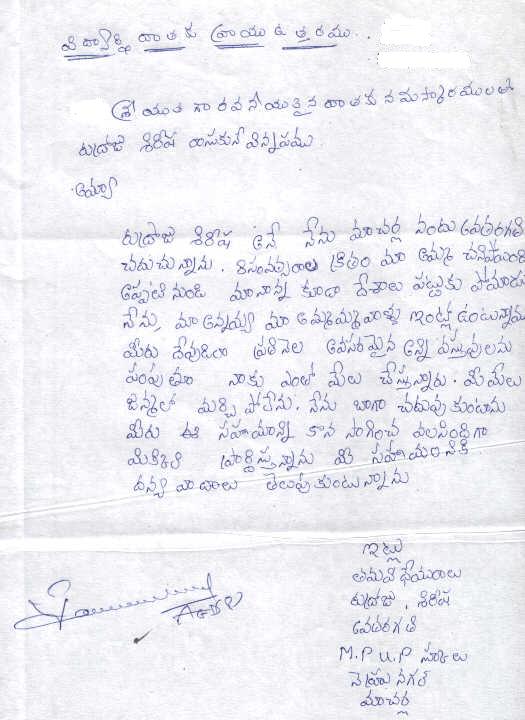 విద్యార్థి దాతకు వ్రాయు ఉత్తరము..
శ్రీయుత గౌరవనీయులైన దాతకు నమస్కారములతో
రుద్రాజు శిరీష వ్రాసుకునే విన్నపము.
అమ్మా
రుద్రాజు శిరీష అనే నేను మాచర్ల నందు 6వతరగతి
చదుచున్నాను. 8సంవత్సరాల క్రితం మా అమ్మ చనిపోయింది
అప్పటినుండి మానాన్న కూడా దేశాలు పట్టుకు పోయాడు
నేను, మా అన్నయ్య మా అమ్మమ్మ వాళ్ళ ఇంట్లో ఉంటున్నాము
మీరు దేవుడిలా ప్రతినెల అవసరమైన అన్ని వస్తువులను
పంపుతూ నాకు ఎంతో మేలు చేస్తున్నారు. మీ మేలు
జన్మలో మర్చి పోలేను. నేను బాగా చదువు కుంటాను
మీరు ఈ సహాయాన్ని కొన సాగించ వలసిందిగా
మిక్కిలి ప్రార్థిస్తున్నాను మీ సహాయానికి
దన్యవాదాలు తెలుపుకుంటున్నాను
ఇట్లు
తమవిధేయురాలు
రుద్రాజు. శిరీష
6వతరగతి
M.P U.P స్కూలు
నెహ్రూ నగర్
మాచర్ల